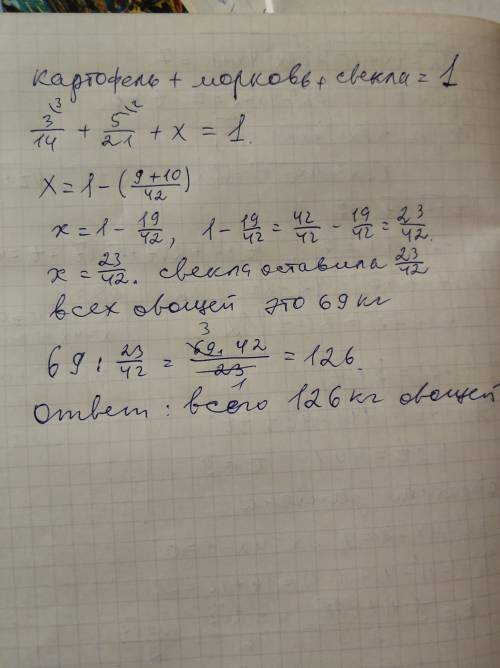 картофель + морковь + свекла = 1
3\3/14 + 5\2/21 + x = 1.
X = 1 - (9+10/42)
x = 1 - 19/42, 1 - 19/42 = 42/42 - 19/42 = 23/42.
x = 23/42. свекла оставила 23/42
всех овощей это 69 кг
69 : 23/42 = 69 3 · 42/23 1 = 126.
Ответ: всего 126 кг овощей